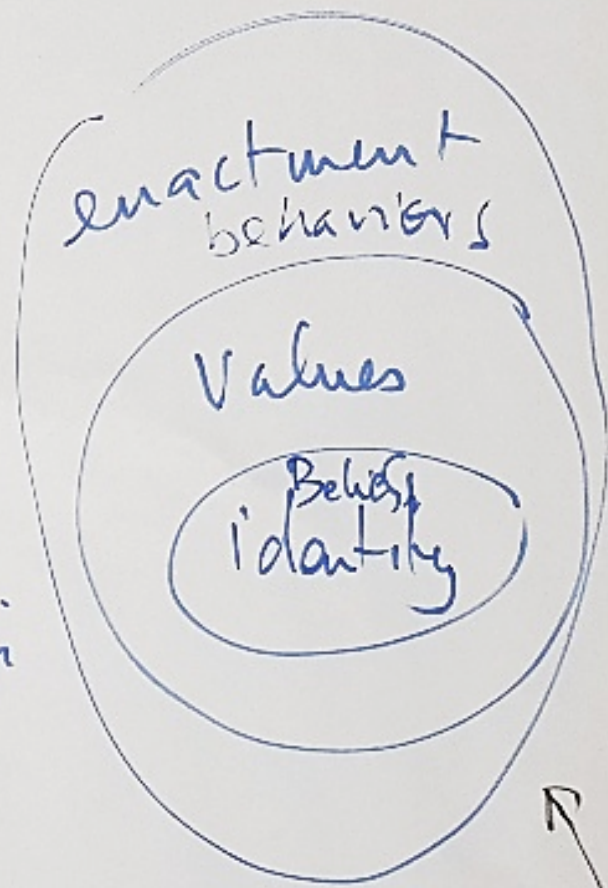 enactment
behaviors
Values
Beliefs
identity